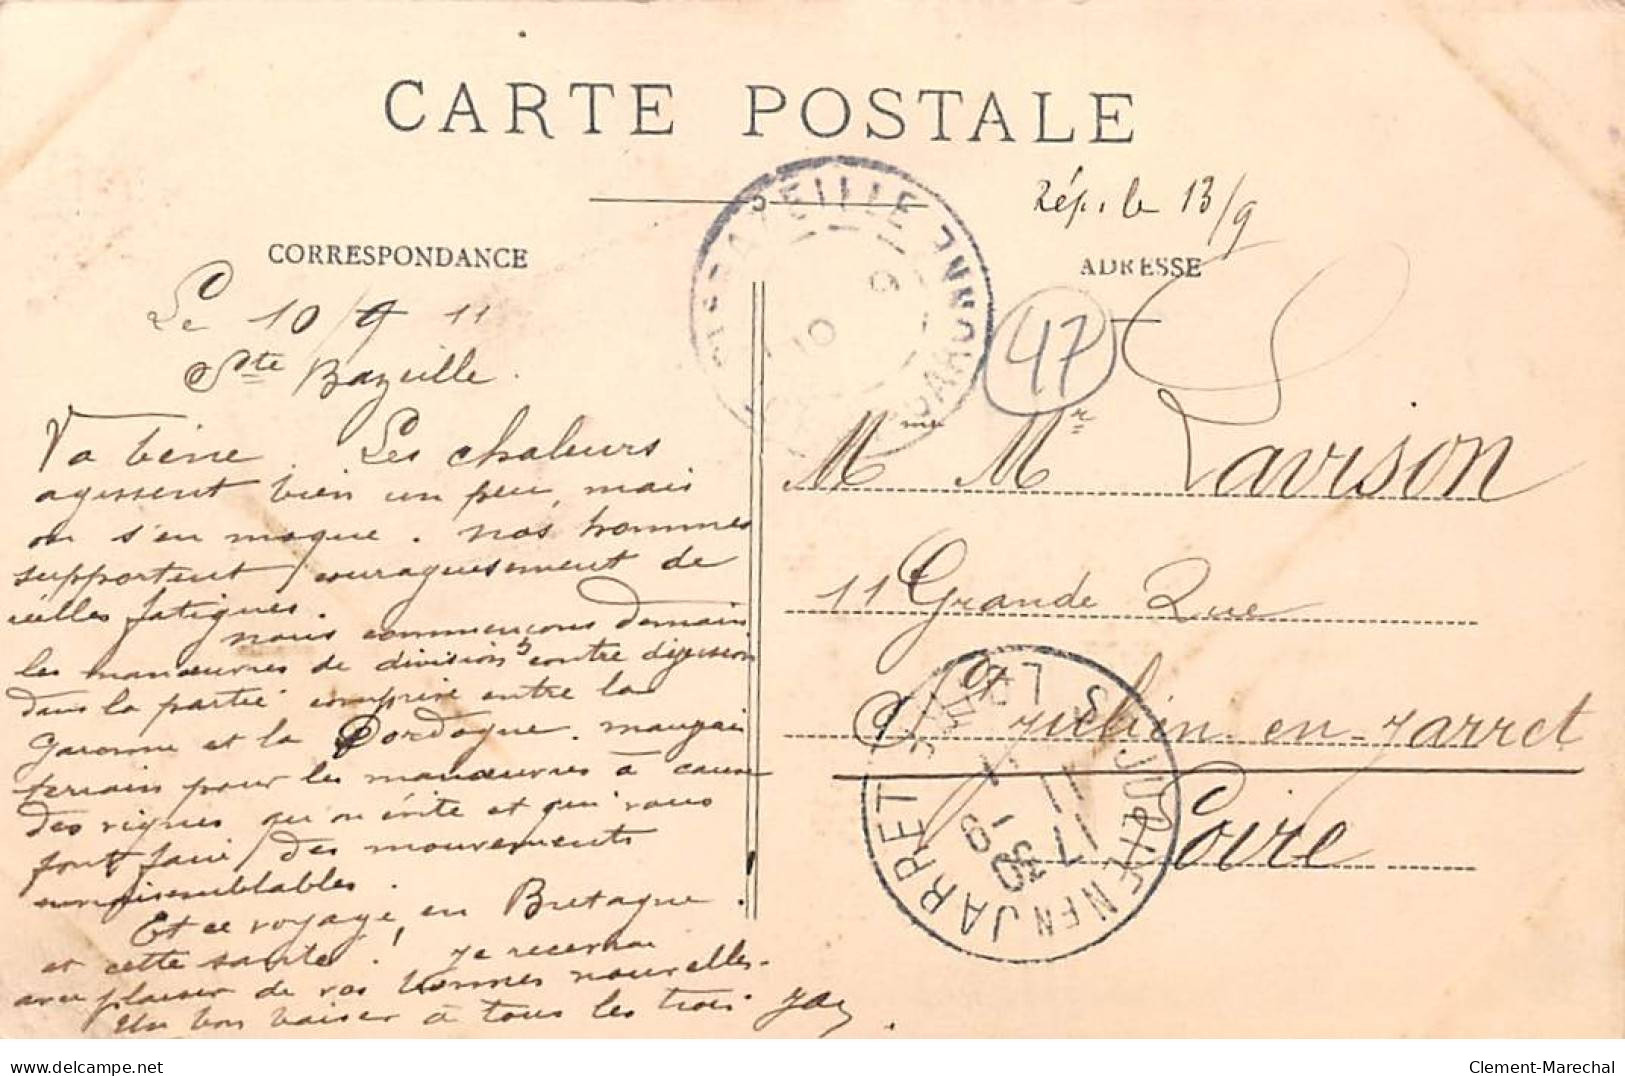 CARTE POSTALE
Rép. le 13/9
CORRESPONDANCE
ADRESSE
Le 10/9 11
Ste Bazeille.
47
Va bène. Les chaleurs
agissent bien un peu, mais
on s'en moque. Nos hommes
supportent courageusement de
réelles fatigues.
Nous commençons demain
les manœuvres de divisions contre division
dans la partie comprise entre la
Garonne et la Dordogne. Mauvais
terrain pour les manœuvres à cause
des vignes qu'on évite et qui vous
font faire des mouvements
invraisemblables.
Et ce voyage en Bretagne.
et cette santé! Je recevrai
avec plaisir de vos bonnes nouvelles.
Un bon baiser à tous les trois.
Mme Mr Lavison
11 Grande Rue
St Julien-en-Jarret
Loire
STE BAZEILLE
GARONNE
10 9
ST JULIEN EN JARRET
LOIRE
11 9
Clement-Marechal